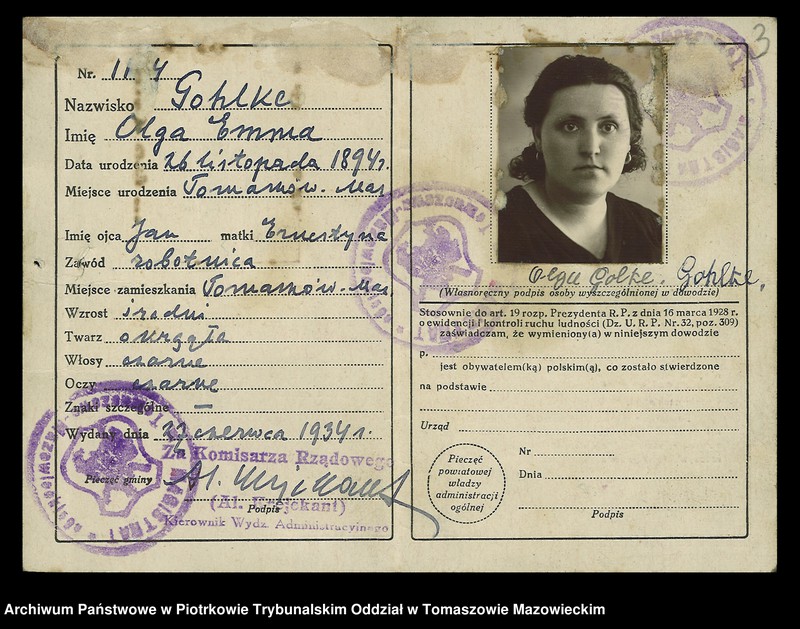 3
Nr. 11 4
Nazwisko Gohlke
Imię Olga Emma
Data urodzenia 26 listopada 1894 r.
Miejsce urodzenia Tomaszów-Maz
Imię ojca Jan matki Ernestyna
Zawód robotnica
Miejsce zamieszkania Tomaszów-Maz.
Wzrost średni
Twarz okrągła
Włosy czarne
Oczy czarne
Znaki szczególne —
Wydany dnia 27 czerwca 1934 r.
Za Komisarza Rządowego
Pieczęć gminy
Podpis
Kierownik Wydz. Administracyjnego
MAGISTRAT
Olga Golke. Gohlke.
(Własnoręczny podpis osoby wyszczególnionej w dowodzie)
Stosownie do art. 19 rozp. Prezydenta R. P. z dnia 16 marca 1928 r.
o ewidencji i kontroli ruchu ludności (Dz. U. R. P. Nr. 32, poz. 309)
zaświadczam, że wymieniony(a) w niniejszym dowodzie
p.
jest obywatelem(ką) polskim(ą), co zostało stwierdzone
na podstawie
Urząd
Pieczęć
powiatowej
władzy
administracji
ogólnej
Nr
Dnia
Podpis
Archiwum Państwowe w Piotrkowie Trybunalskim Oddział w Tomaszowie Mazowieckim